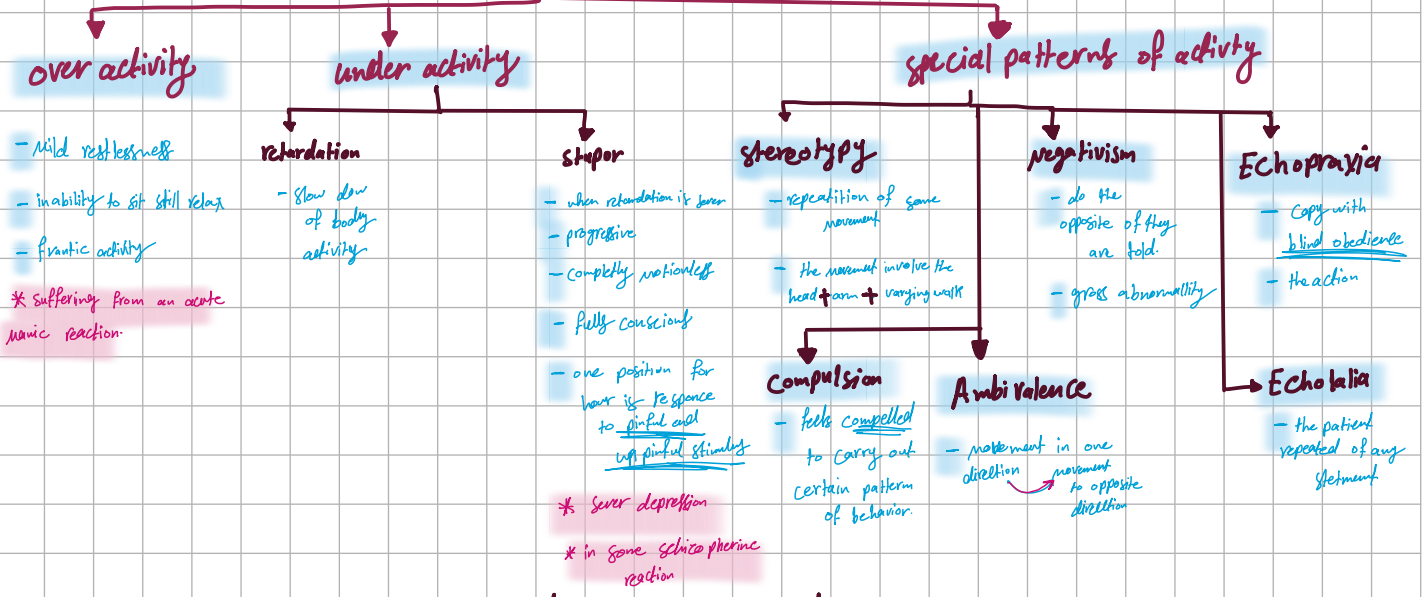 over activity
- Mild restlessness
- inability to sit still relax
- frantic activity
* suffering from an acute
manic reaction.
under activity
retardation
- slow dow
of body
activity
stupor
- when retardation is sever
- progressive
- completly motionless
- fully conscious
- one position for
hour is responce
to pinful and
un pinful stimuly
* sever depression
* in some schizopherine
reaction
special patterns of activty
stereotypy
- repeatition of some
movement
- the movement involve the
head + arm + varying walk
Compulsion
- feels compelled
to carry out
certain pattern
of behavior.
Ambivalence
- movement in one
direction movement
to opposite
direction
Negativism
- do the
opposite of they
are told.
- gross abnormallity
Echopraxia
- Copy with
blind obedience
- the action
Echolalia
- the patient
repeated of any
stetment